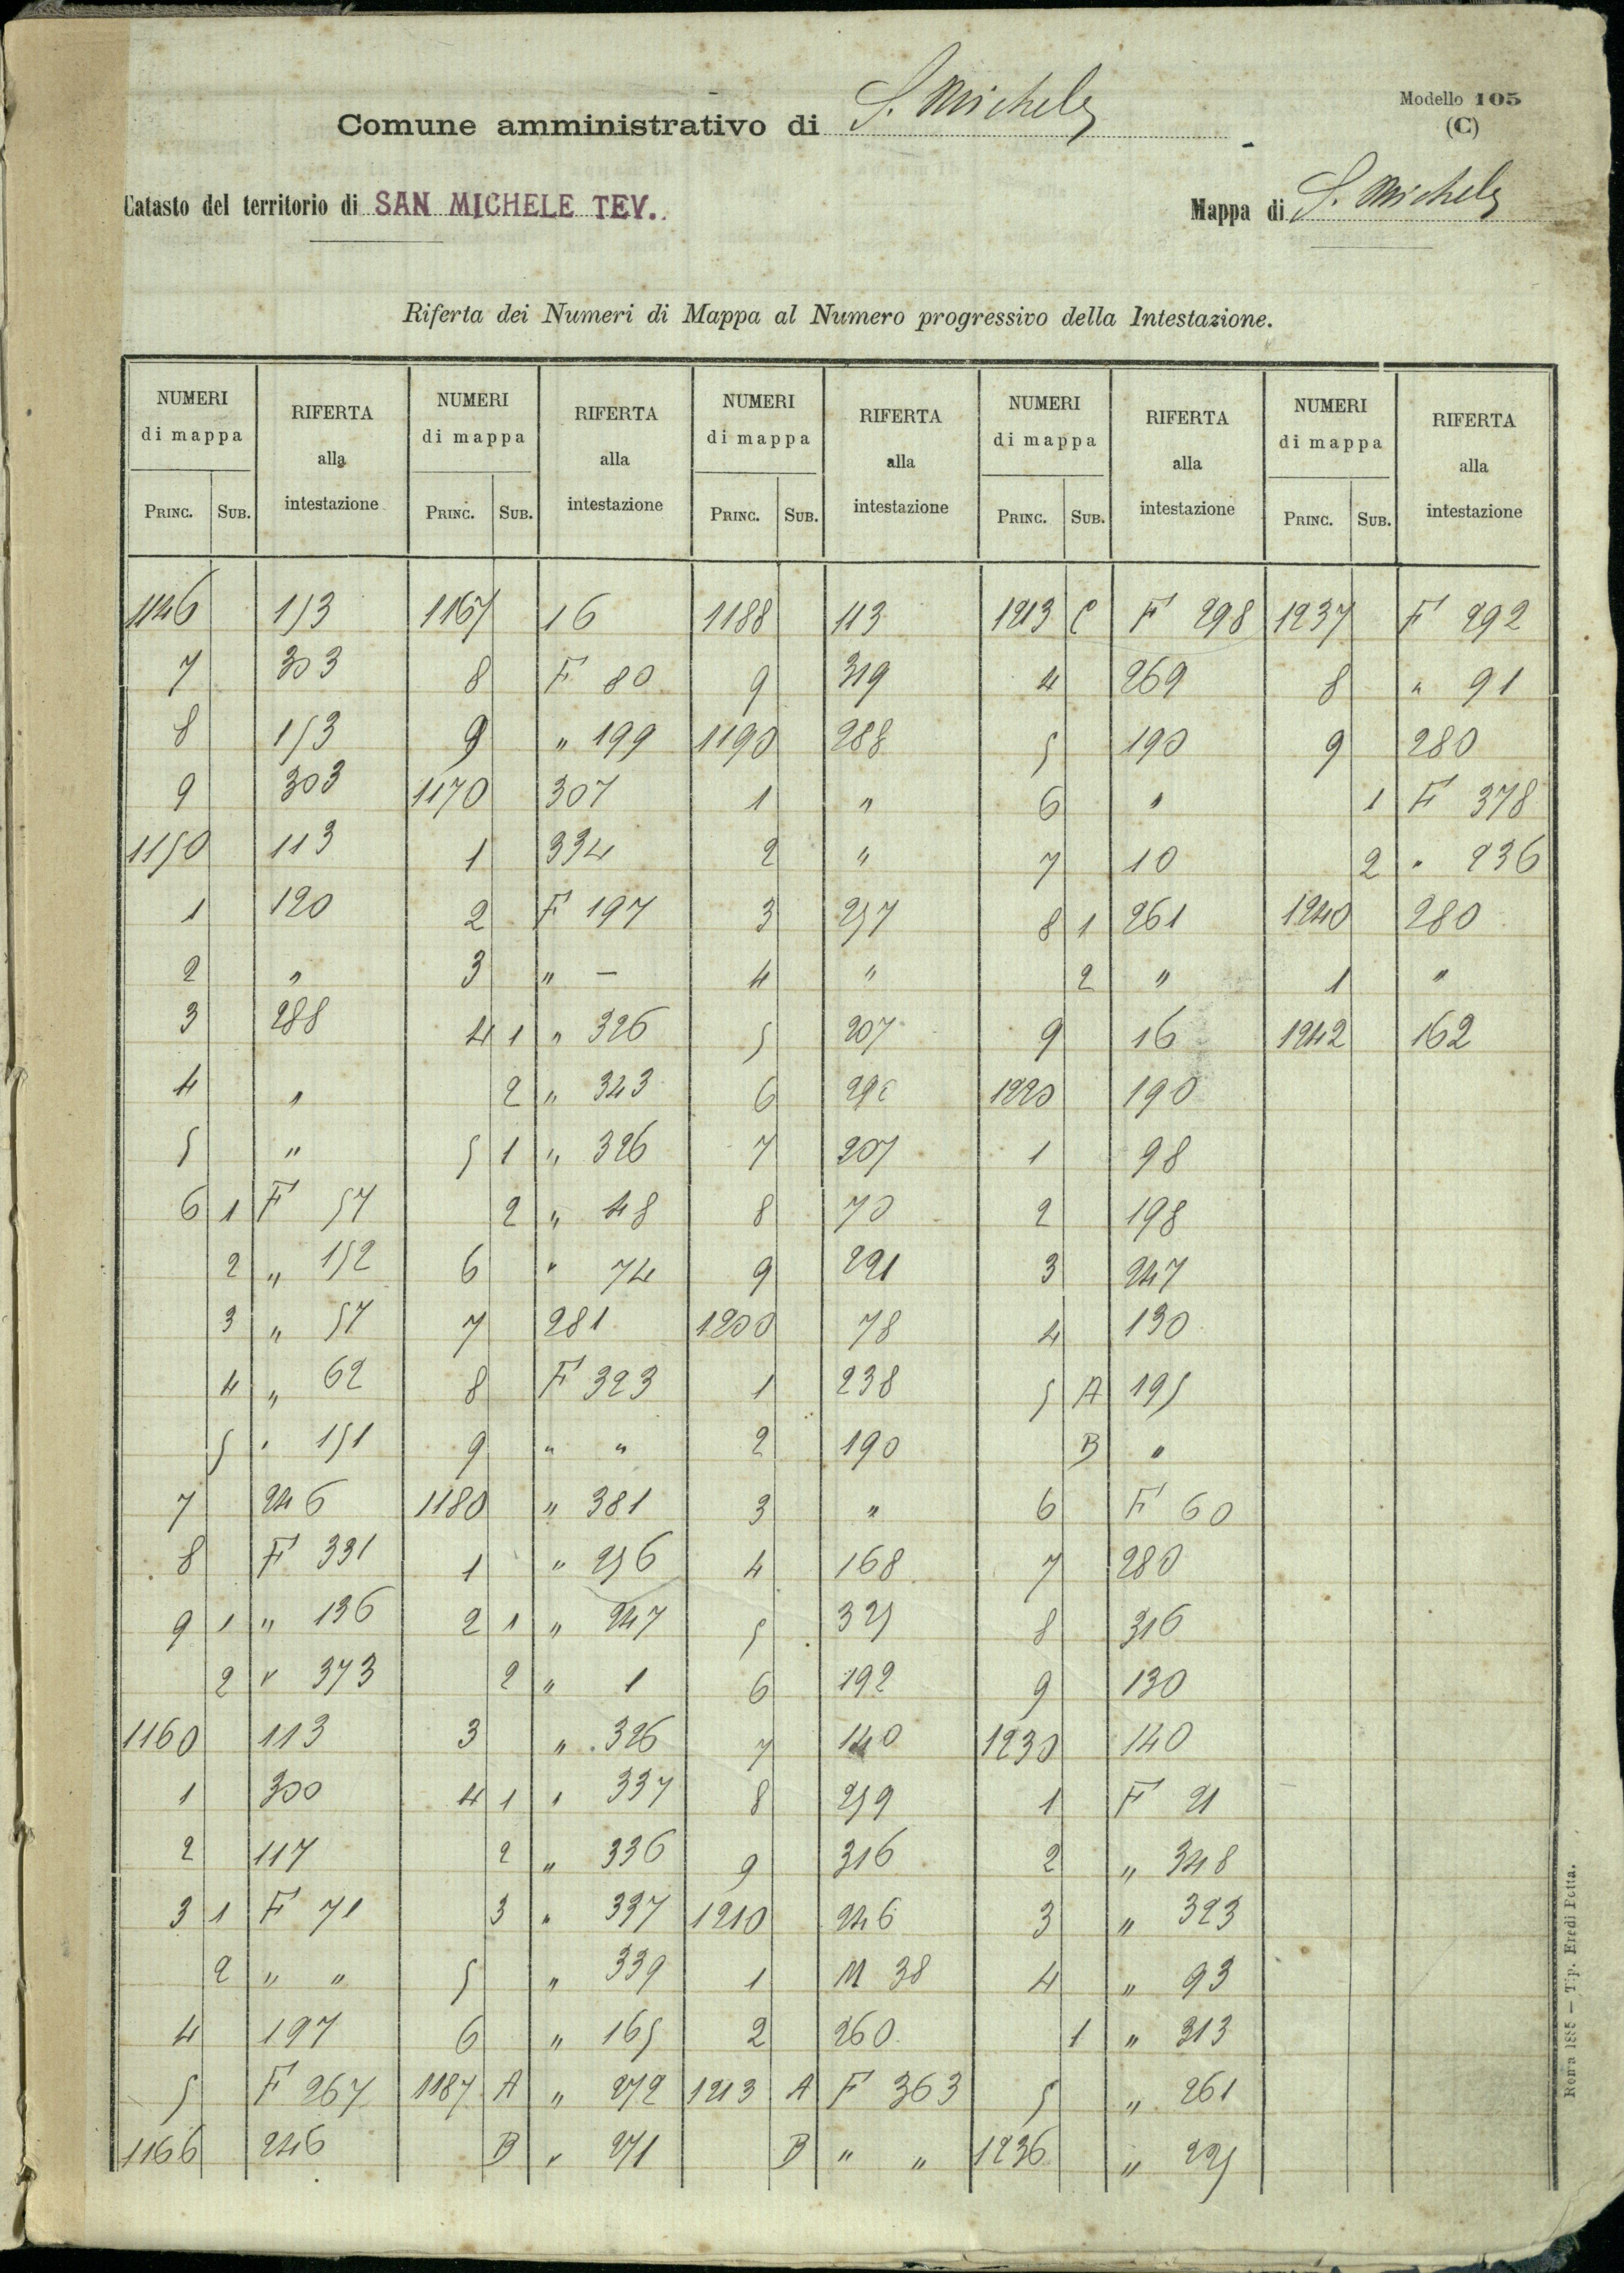 Modello 105
(C)
Comune amministrativo di S. Michele
Catasto del territorio di SAN MICHELE TEV. Mappa di S. Michele
Riferta dei Numeri di Mappa al Numero progressivo della Intestazione.
NUMERI RIFERTA NUMERI RIFERTA NUMERI RIFERTA NUMERI RIFERTA NUMERI RIFERTA
di mappa alla di mappa alla di mappa alla di mappa alla di mappa alla
PRINC. SUB. intestazione PRINC. SUB. intestazione PRINC. SUB. intestazione PRINC. SUB. intestazione PRINC. SUB. intestazione
1146 153 1167 16 1188 113 1213 C F 298 1237 F 292
7 303 8 F 80 9 319 4 269 8 " 91
8 153 9 " 199 1190 288 5 190 9 280
9 303 1170 307 1 " 6 " 1 F 378
1150 113 1 334 2 " 7 10 2 " 236
1 120 2 F 197 3 257 8 1 261 1240 280
2 " 3 " — 4 " 2 " 1 "
3 288 4 1 " 326 5 207 9 16 1242 162
4 " 2 " 343 6 1220 190
5 " 5 1 " 326 7 207 1 98
6 1 F 57 2 " 48 8 70 2 198
2 " 152 6 " 74 9 221 3 247
3 " 57 7 281 1200 78 4 130
4 " 62 8 F 323 1 238 5 A 195
5 " 151 9 " " 2 190 B "
7 246 1180 " 381 3 " 6 F 60
8 F 331 1 " 256 4 168 7 280
9 1 " 136 2 1 " 247 5 325 8 316
2 " 373 2 " 1 6 192 9 130
1160 113 3 " 326 7 140 1230 140
1 300 4 1 " 337 8 259 1 F 21
2 117 2 " 336 9 316 2 " 348
3 1 F 71 3 " 337 1210 246 3 " 323
2 " " 5 " 339 1 M 38 4 " 93
4 197 6 " 165 2 260 1 " 313
5 F 267 1187 A " 272 1213 A F 363 5 " 261
1166 246 B " 271 B " " 1236 " 225
Roma 1885 — Tip. Eredi Botta.